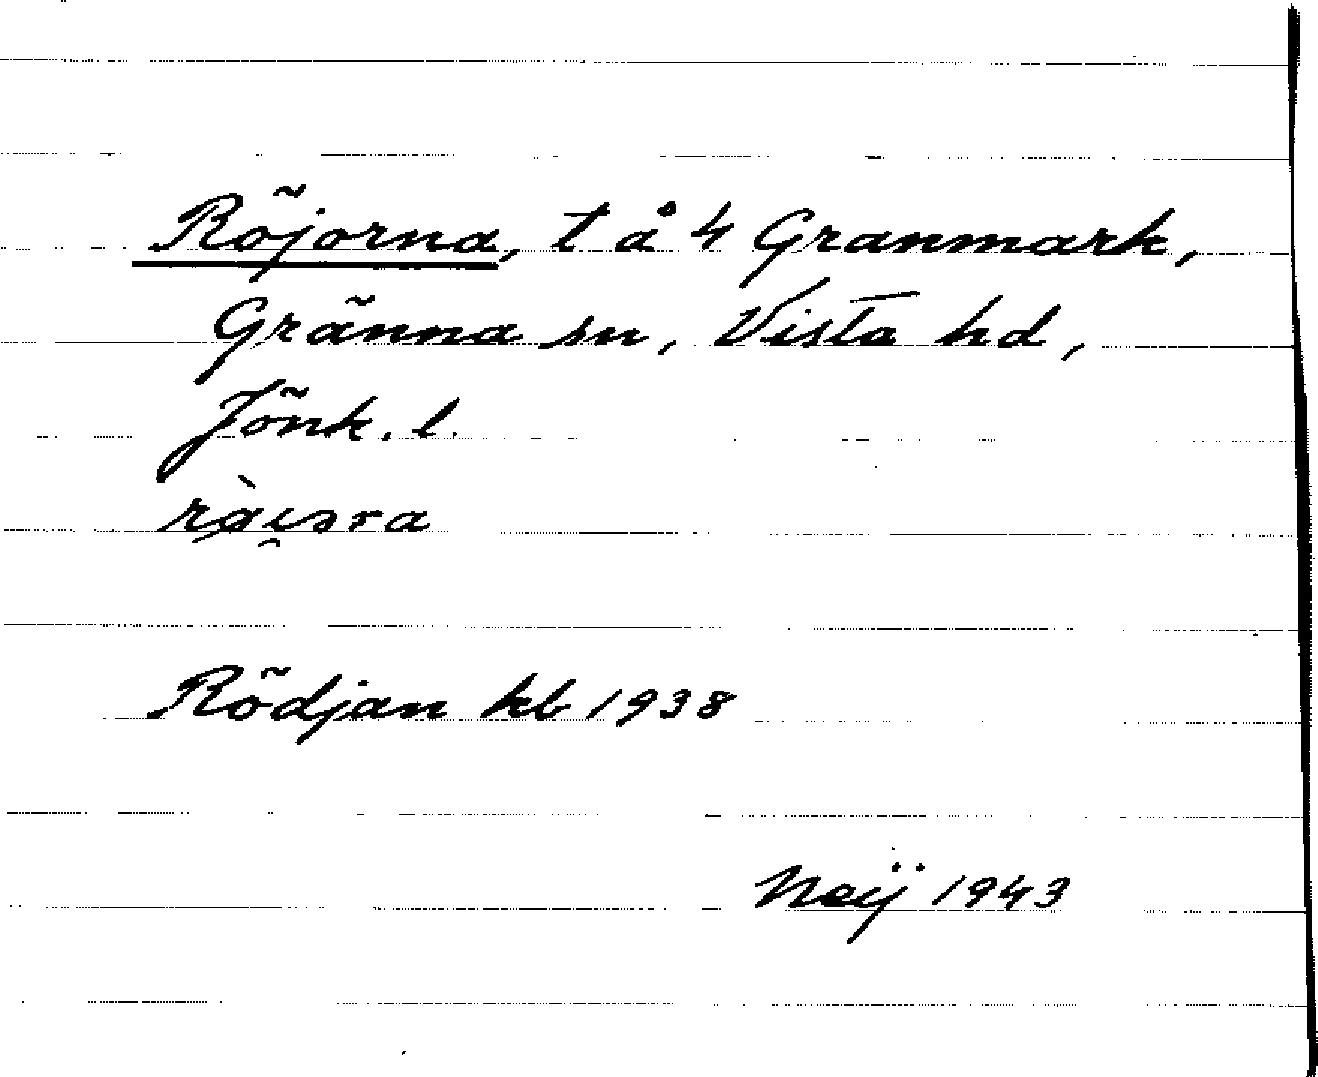 Röjorna, t å 4 Granmark,
Gränna sn, Vista hd,
Jönk. l.
Rödjan kb 1938
Neij 1943